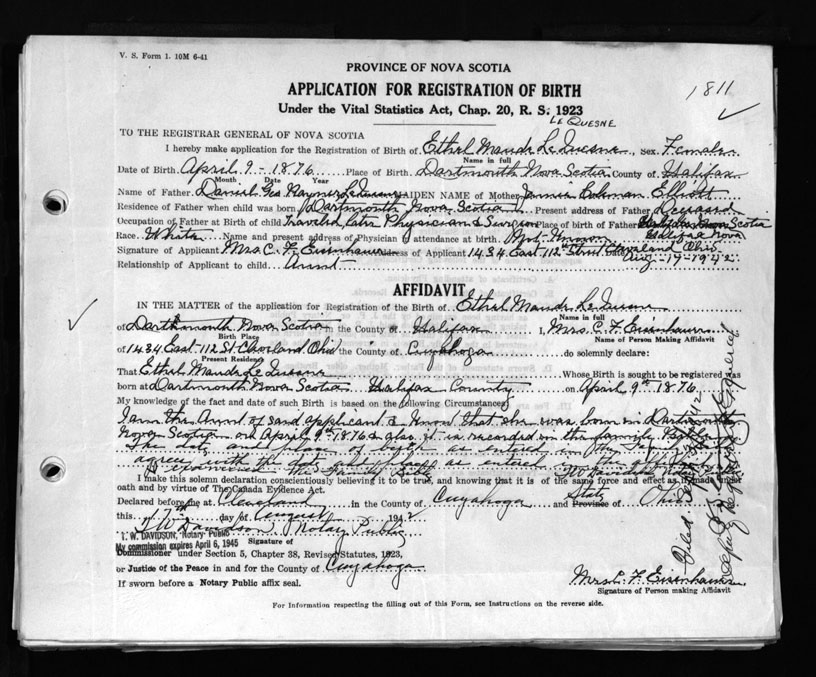 V. S. Form 1. 10M 6-41
PROVINCE OF NOVA SCOTIA
APPLICATION FOR REGISTRATION OF BIRTH
1811
Under the Vital Statistics Act, Chap. 20, R. S. 1923
LE QUESNE
TO THE REGISTRAR GENERAL OF NOVA SCOTIA
I hereby make application for the Registration of Birth of Ethel Maude Le Quesne Sex Female
Name in full
Date of Birth April 9 - 1876 Place of Birth Dartmouth Nova Scotia County of Halifax
Month Date Year
Name of Father Daniel Geo Le Quesne MAIDEN NAME of Mother Jennie Elliott
Residence of Father when child was born Dartmouth Nova Scotia Present address of Father Deceased
Occupation of Father at Birth of child Physician & Surgeon Place of birth of Father Nova Scotia
Race White Name and present address of Physician in attendance at birth.
Signature of Applicant Mrs. C. F. Eisenhauer Address of Applicant 1434 East 112th Street Cleveland Ohio
Aug. 17-1942
Relationship of Applicant to child Aunt
AFFIDAVIT
IN THE MATTER of the application for Registration of the Birth of Ethel Maude Le Quesne
Name in full
of Dartmouth Nova Scotia in the County of Halifax I, Mrs. C. F. Eisenhauer
Birth Place Name of Person Making Affidavit
of 1434 East-112 St Cleveland Ohio the County of Cuyahoga do solemnly declare:
Present Residence
That Ethel Maude Le Quesne Whose Birth is sought to be registered was
born at Dartmouth Nova Scotia Halifax County on April 9th 1876
My knowledge of the fact and date of such Birth is based on the following Circumstances:
I am the Aunt of said applicant & know that she was born in Dartmouth
Nova Scotia on April 9th 1876 & also it is recorded in the family Bible
agree with the as entered
I make this solemn declaration conscientiously believing it to be true, and knowing that it is of the same force and effect as if made under
oath and by virtue of The Canada Evidence Act.
Declared before me at Cleveland in the County of Cuyahoga and Province of State Ohio
this day of August 1942
I. W. Davidson, Notary Public
I. W. DAVIDSON, Notary Public
My commission expires April 6, 1945
Signature of
Commissioner under Section 5, Chapter 38, Revised Statutes, 1923,
or Justice of the Peace in and for the County of Cuyahoga
If sworn before a Notary Public affix seal.
Mrs. C. F. Eisenhauer
Signature of Person making Affidavit
For Information respecting the filling out of this Form, see Instructions on the reverse side.
Filed
Deputy Registrar General